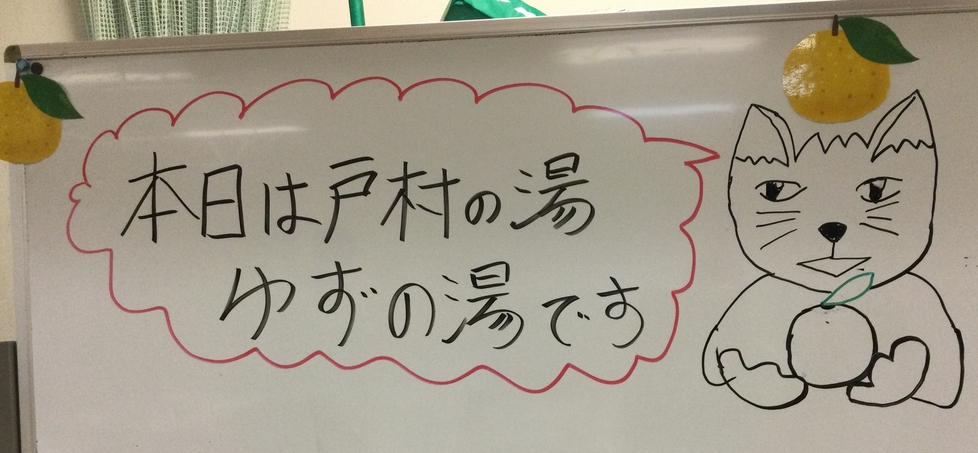 本日は戸村の湯
ゆずの湯です